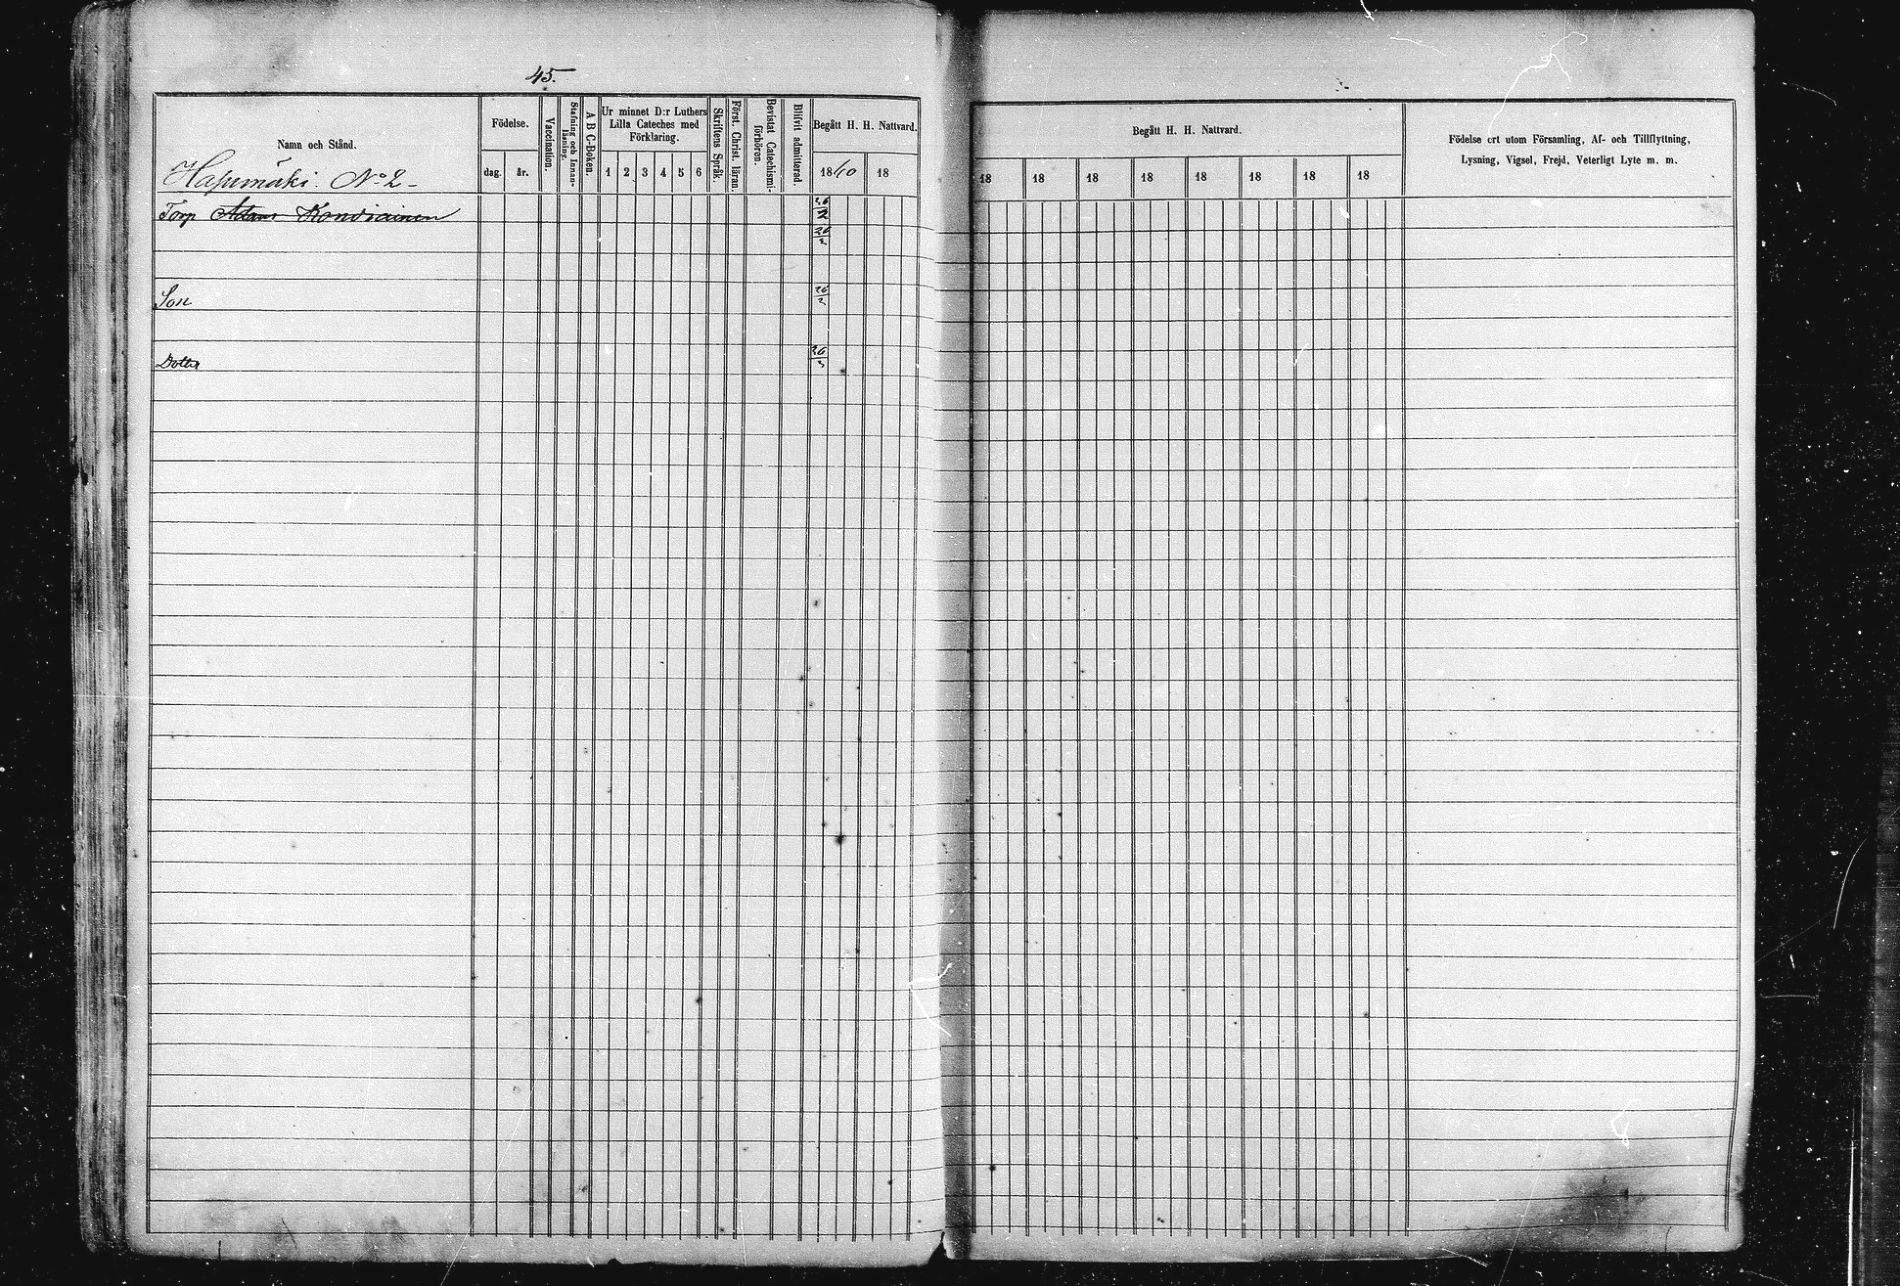 45.
Namn och Stånd.
Hapumäki. No 2.
Födelse.
dag. år.
Vaccination.
Stafning och Innan-läsning.
A B C-Boken.
Ur minnet D:r Luthers
Lilla Cateches med
Förklaring.
1 2 3 4 5 6
Skriftens Språk.
Först. Christ. läran.
Bevistat Catechismi-förhören.
Blifvit admitterad.
Begått H. H. Nattvard.
18 18
Begått H. H. Nattvard.
18 18 18 18 18 18 18 18
Födelse ort utom Församling, Af- och Tillflyttning,
Lysning, Vigsel, Frejd, Veterligt Lyte m. m.
Torp Adam
26/2
26/2
Son 26/2
Dotter 26/2